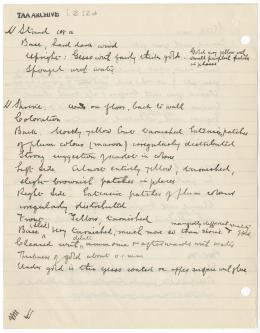 TAA ARCHIVE i.2.12a
Stand 108 a
Base, hard dark wood
Upright: Gesso with fairly thick gold
Gold very yellow with
small purplish patches
in places
Sponged with water
Shrine: on floor, back to wall
Coloration
Back Mostly yellow but varnished Extensive patches
of plum colour (maroon) irregularly distributed
Strong suggestion of scarlet in colour
Left side Almost entirely yellow, varnished,
slight brownish patches in places
Right side Extensive patches of plum colour
irregularly distributed
Front Yellow, varnished
Base very varnished, much more so than shrine &
Cleaned with ammonia & afterwards with water
dilute
Thickness of gold about
Under gold is thin gesso coated on upper surface with glue